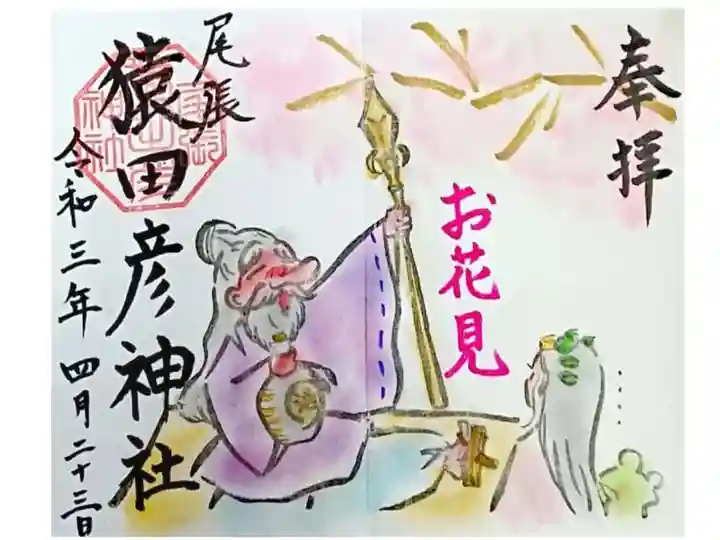 奉拝
お花見
尾張
猿田彦神社
令和三年 四月二十三日